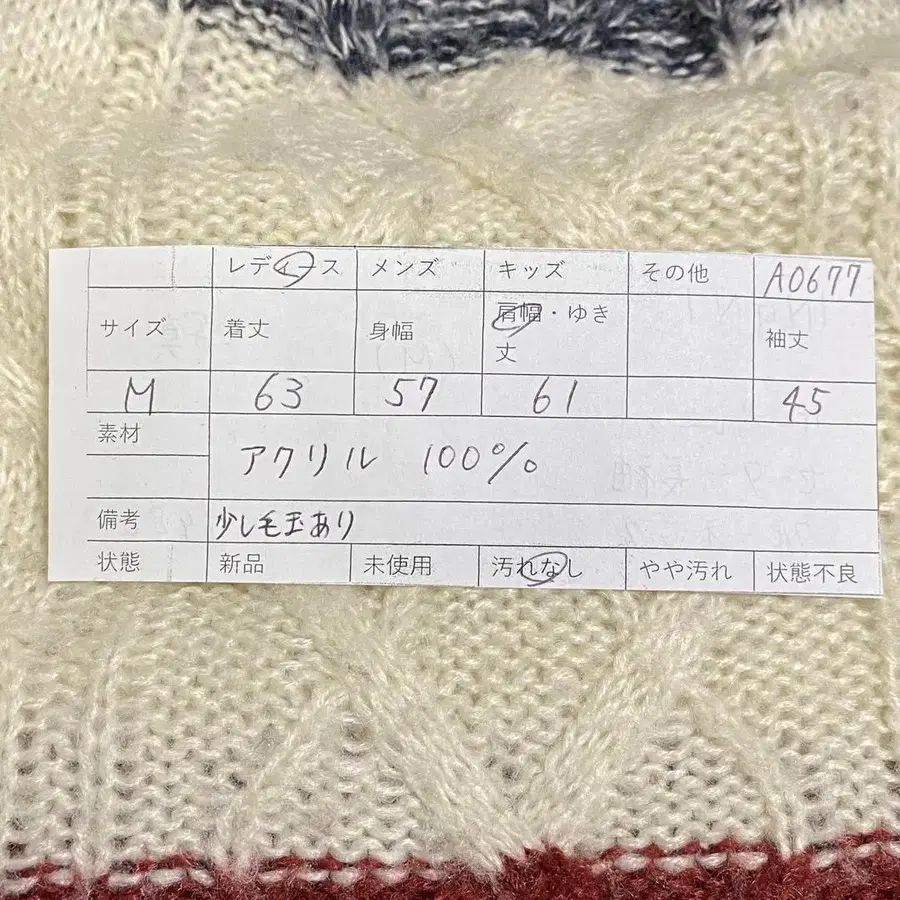 レディース メンズ キッズ その他 A0677
サイズ 着丈 身幅 肩幅・ゆき丈 袖丈
M 63 57 61 45
素材 アクリル 100%
備考 少し毛玉あり
状態 新品 未使用 汚れなし やや汚れ 状態不良